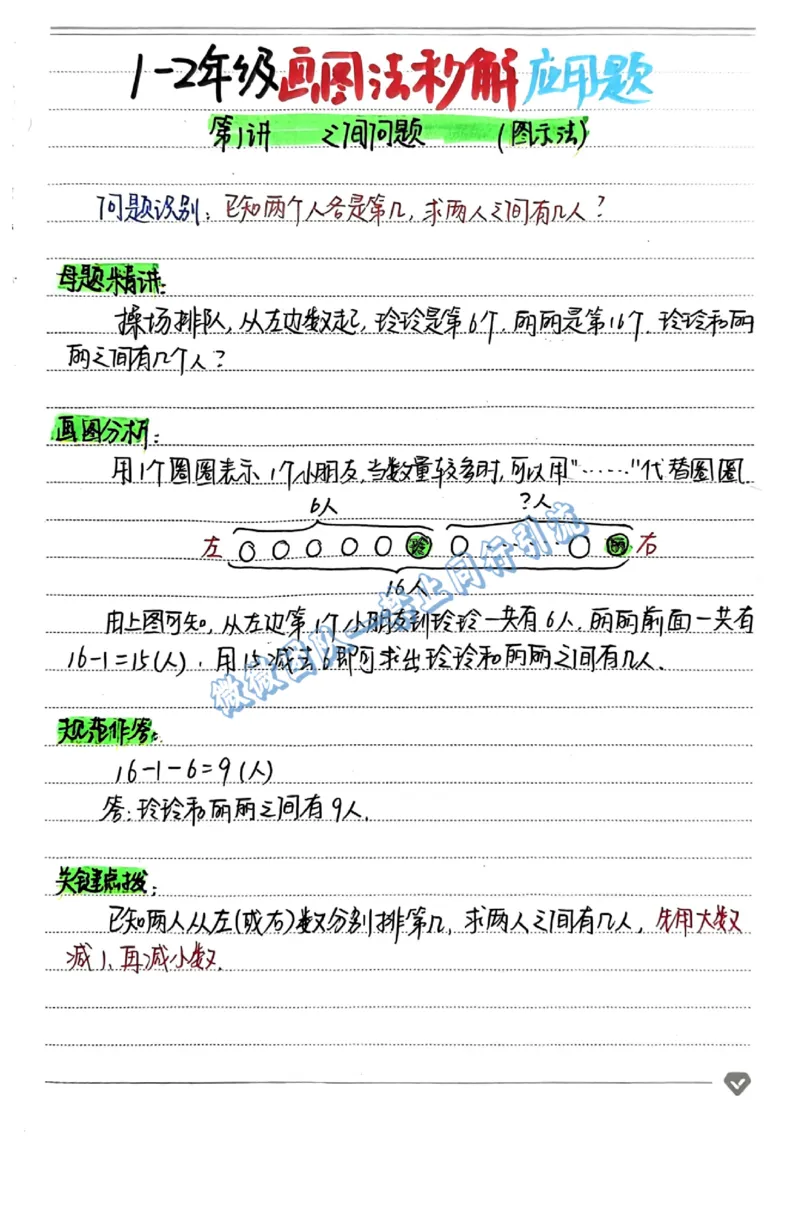 1-2年级画图法秒解应用题
第1讲 之间问题 (图示法)
问题识别:已知两个人各是第几,求两人之间有几人?
母题精讲:
操场排队,从左边数起,玲玲是第6个,丽丽是第16个.玲玲和丽
丽之间有几个人?
画图分析:
用1个圈圈表示1个小朋友,当数量较多时,可以用"……"代替圈圈.
6人 ?人
左 玲 …… 丽 右
16人
由上图可知,从左边第1个小朋友到玲玲一共有6人.丽丽前面一共有
16-1=15(人),用15减去6即可求出玲玲和丽丽之间有几人.
规范作答:
16-1-6=9(人)
答:玲玲和丽丽之间有9人.
关键点拨:
已知两人从左(或右)数分别排第几,求两人之间有几人,先用大数
减1,再减小数.
微微团队—禁止同行引流